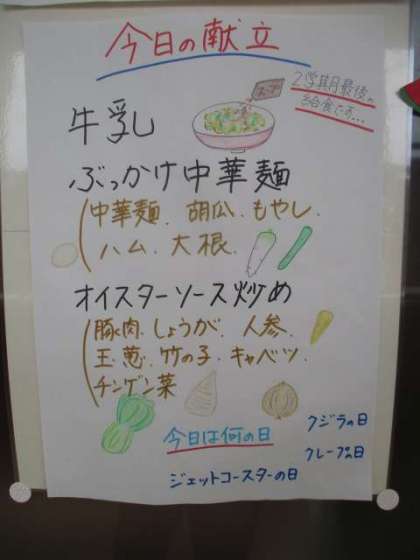 今日の献立
2学期最後の
給食です…
牛乳
ぶっかけ中華麺
(中華麺、胡瓜、もやし、
ハム、大根、
オイスターソース炒め
(豚肉、しょうが、人参、
玉葱、竹の子、キャベツ、
チンゲン菜
今日は何の日
クジラの日
クレープの日
ジェットコースターの日